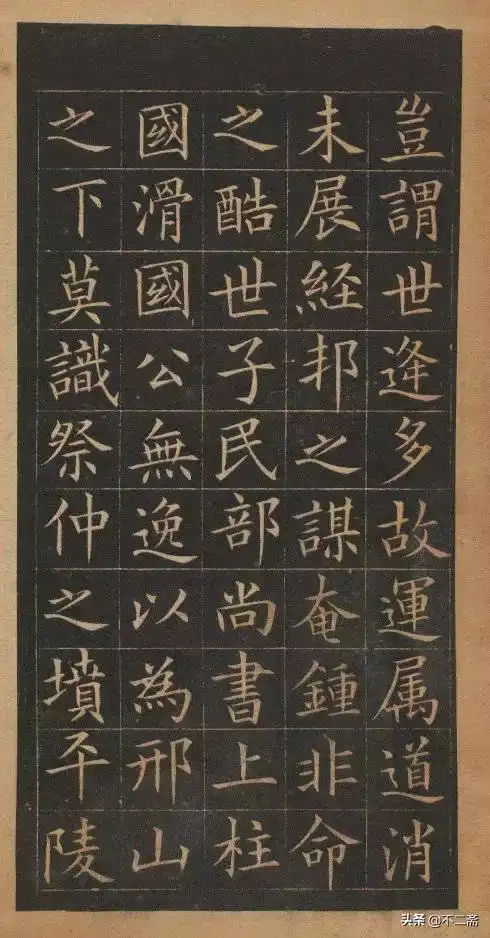 豈謂世逄多故運属道消
未展経邦之謀奄鍾非命
之酷世子民部尚書上柱
國滑國公無逸以為邢山
之下莫識祭仲之墳平陵
头条 @不二斋